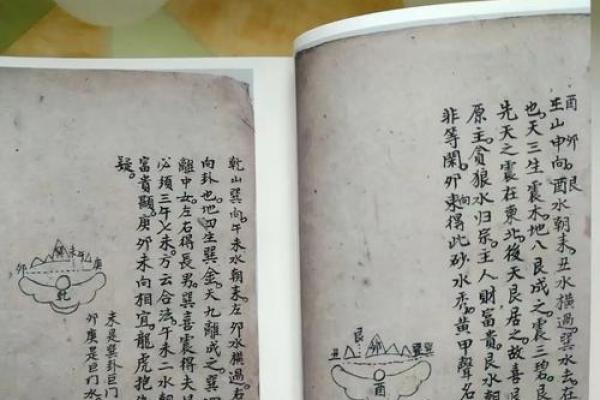 酉卯艮
山申向。酉水朝来。丑水横過。巽水去。在
也。天三生震木。地八艮成之。震三碧。艮
先天之震在東北。後天艮居之。故喜
原主。貪狼水归宗。主人財富貴。艮水朝
非等閑。卯東向得此砂水秀。黄甲聲名
丑 艮 卯 巽
酉
乾山巽向。午未水朝来。左卯水横過。右
向卦也。地四生巽金。天九離成之。巽
離中女。左右得長男。巽喜震得夫是
必須三午义未。方云合法。午未二水朝
富貴顯。庚卯未向相宜。龍虎抱
疑。
卯 巽 未午 庚
乾
未是巽卦巨門水
卯庚是巨門水